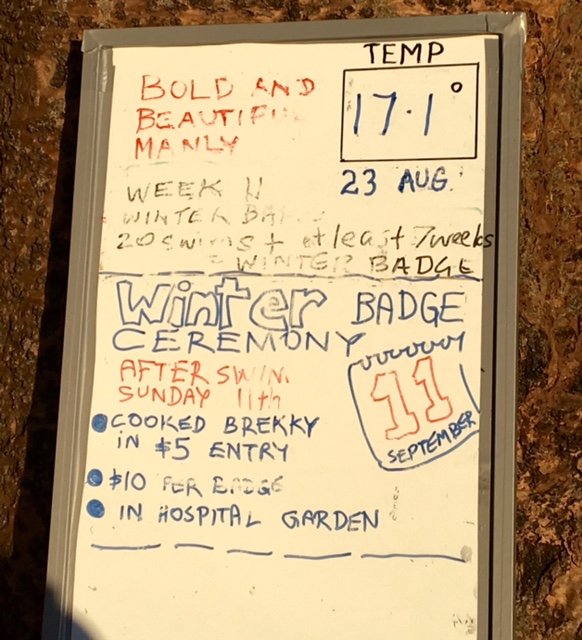 TEMP
17.1°
23 AUG.
BOLD AND
BEAUTIFUL
MANLY
WEEK 11
WINTER BA
20 swims + at least 7 weeks
= WINTER BADGE
Winter BADGE
CEREMONY
AFTER SWIM.
SUNDAY 11th
11
SEPTEMBER
COOKED BREKKY
IN $5 ENTRY
$10 PER BADGE
IN HOSPITAL GARDEN